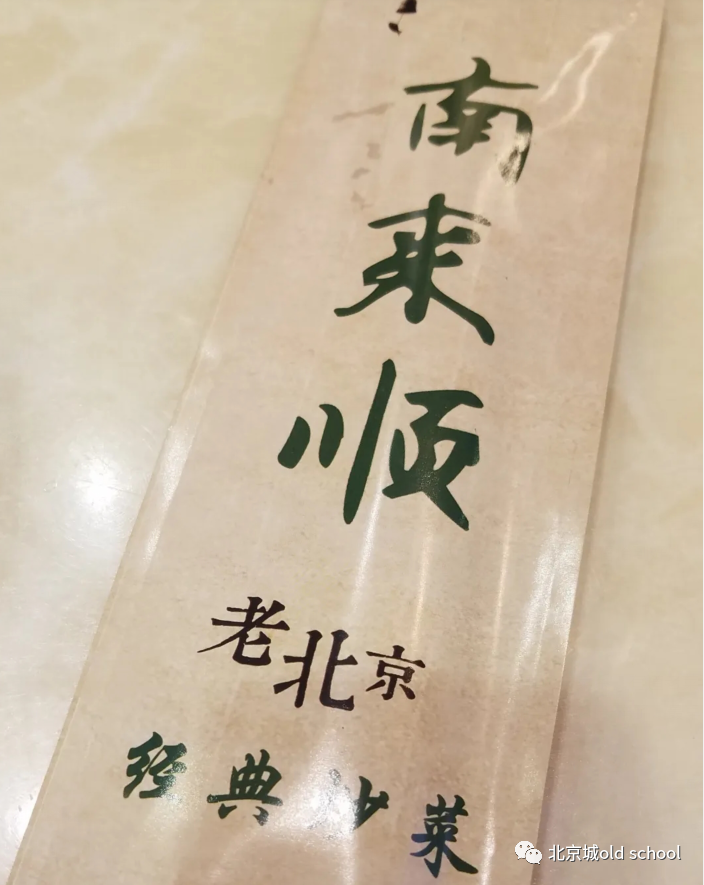 南来顺
老北京
经典炒菜
北京城old school